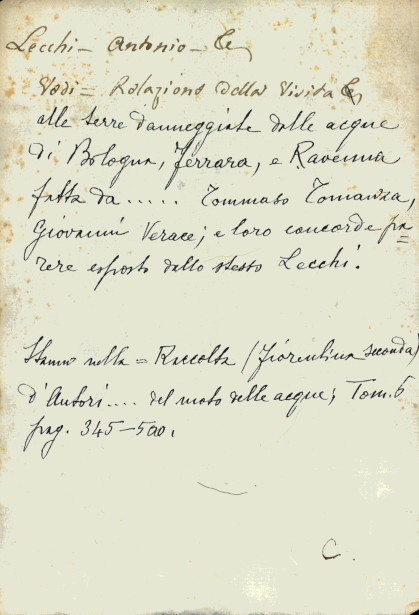 Lecchi = Antonio = &
Vedi = Relazione della Visita &
alle terre danneggiate dalle acque
di Bologna, Ferrara, e Ravenna
fatta da ..... Tommaso Temanza,
Giovanni Verace; e loro concorde pa=
rere esposto dallo stesso Lecchi.
Stanno nella = Raccolta (Fiorentina seconda)
d'Autori .... del moto delle acque; Tom. 6
pag. 345-500.
C.